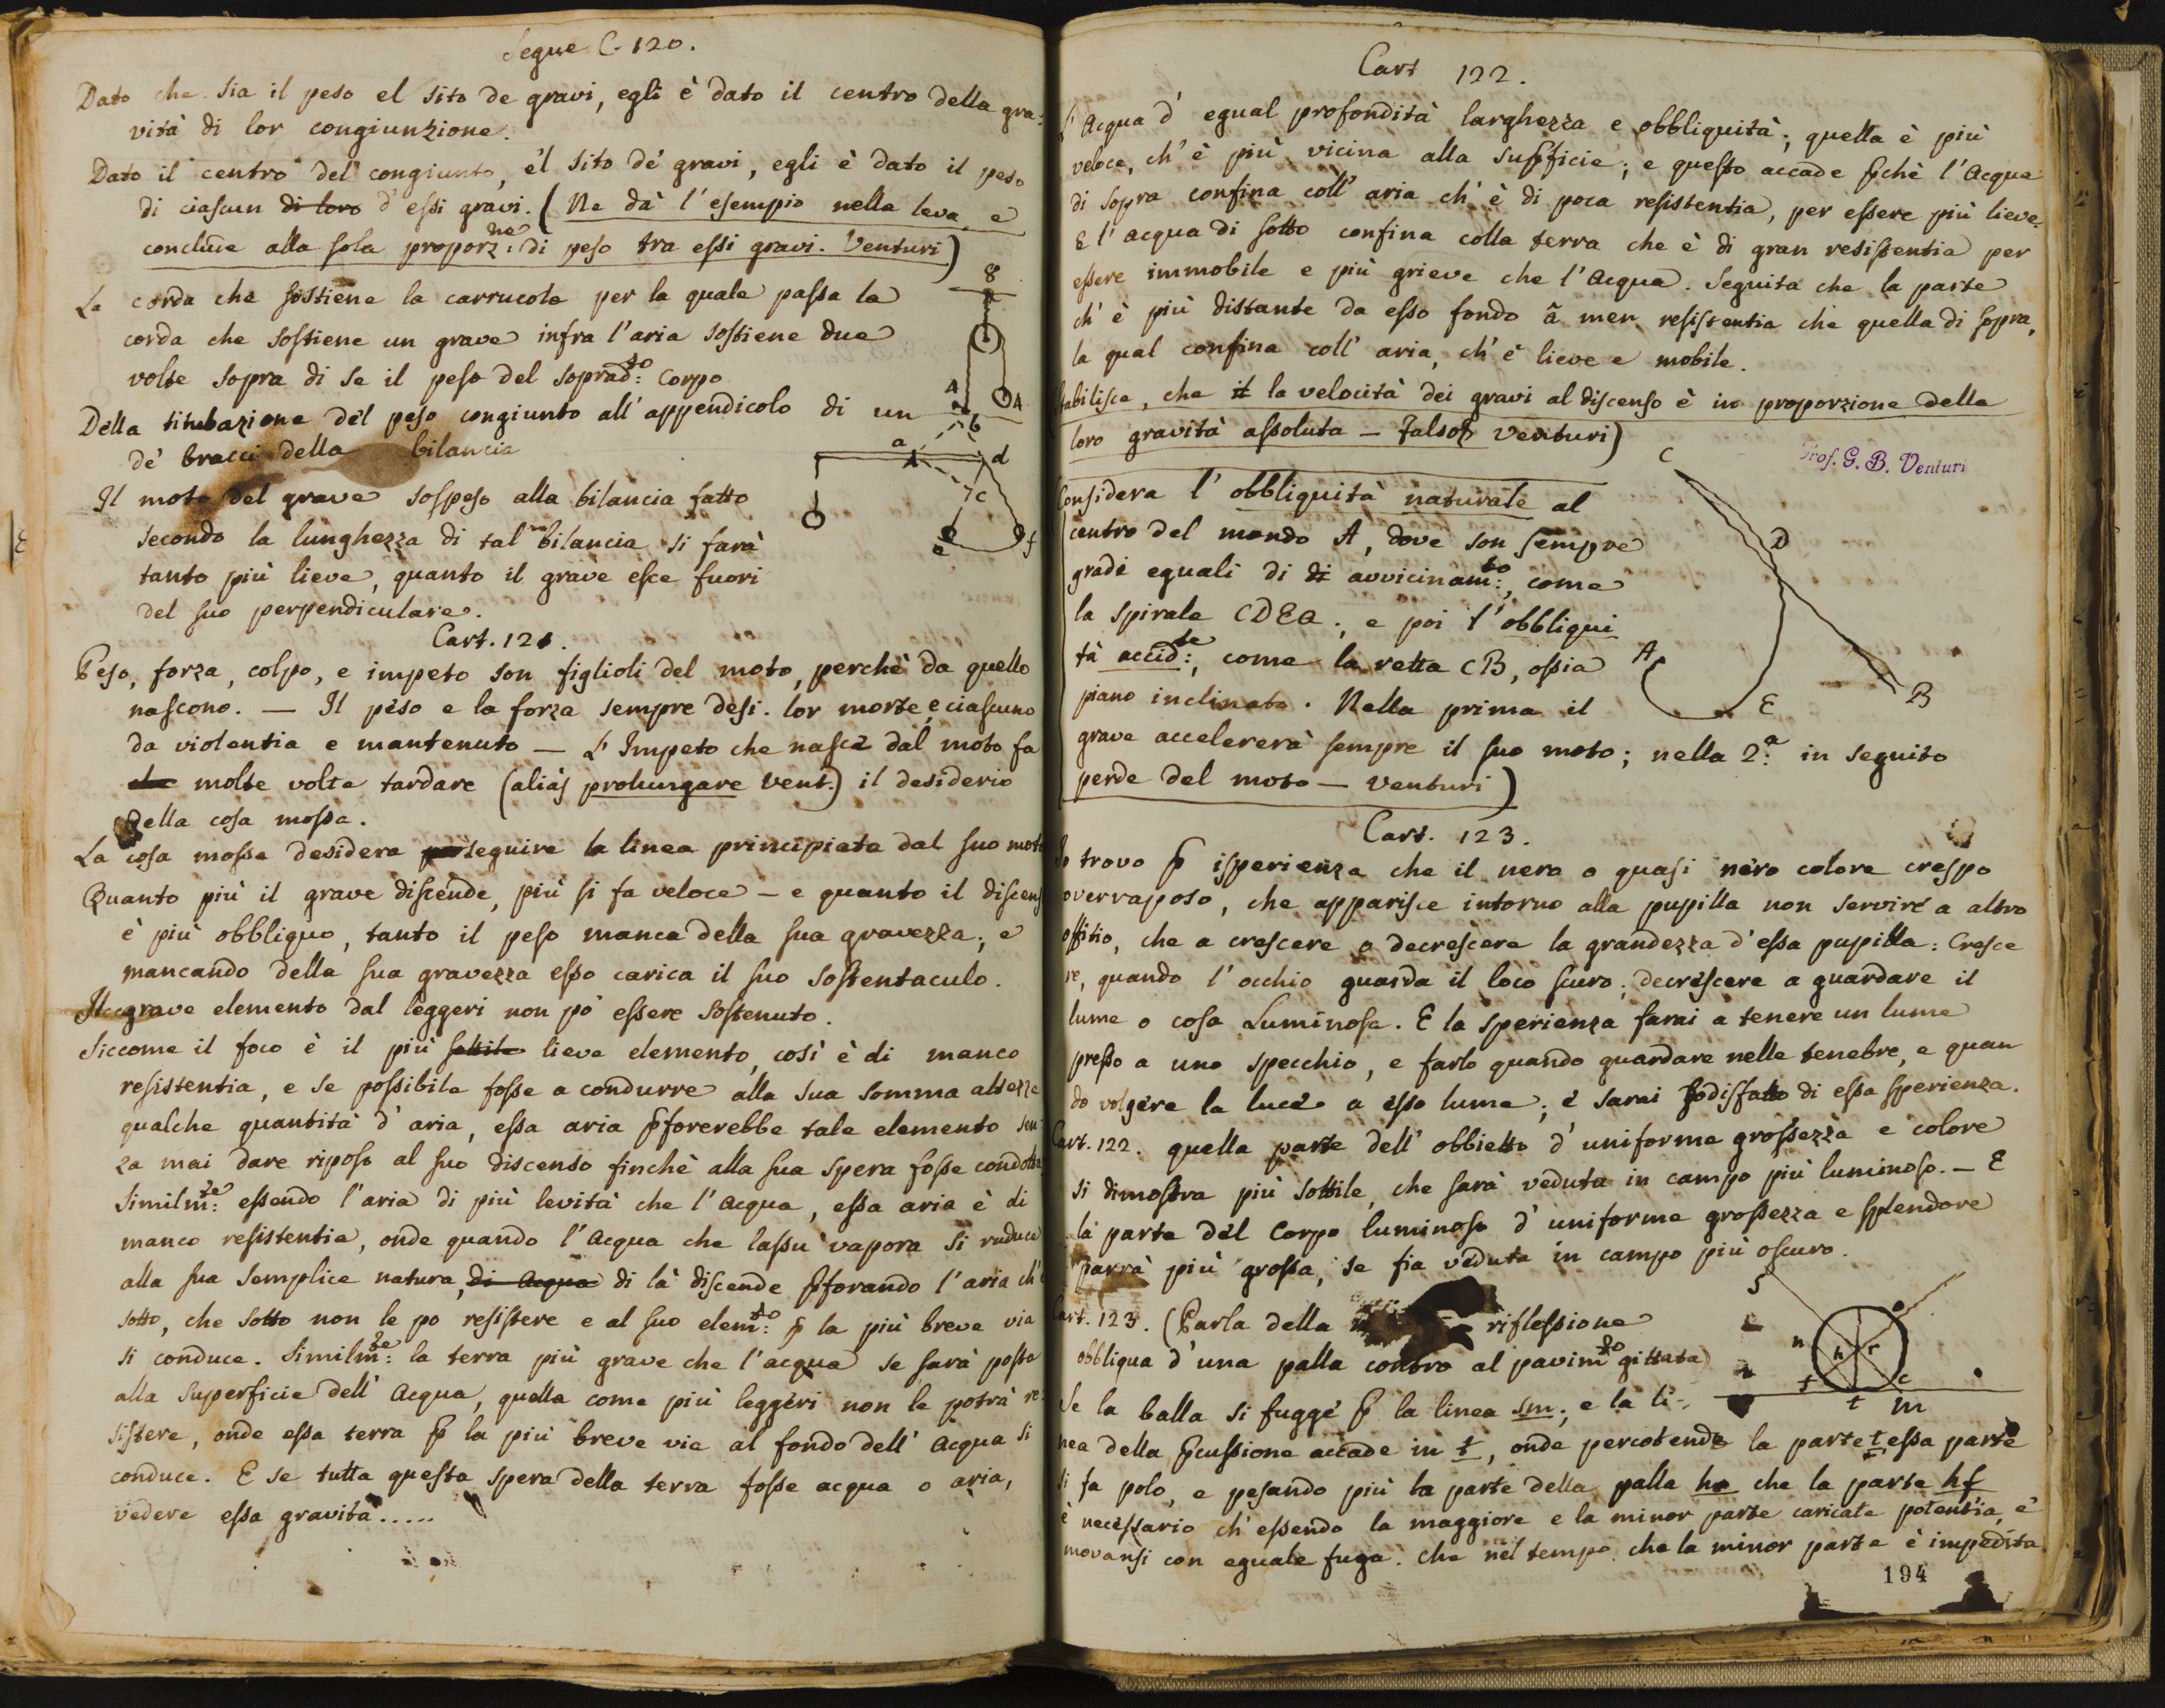 Segue C. 120.
Dato che sia il peso el sito de gravi, egli è dato il centro della gra:
vità di lor congiunzione.
Dato il centro del congiunto, e'l sito de' gravi, egli è dato il peso
di ciascun di loro d'essi gravi. (Ne dà l'esempio nella leva, e
conclude alla sola proporz:ne di peso tra essi gravi. Venturi)
La corda che sostiene la carrucola per la quale passa la
corda che sostiene un grave infra l'aria sostiene due
volte sopra di se il peso del soprad:to Corpo
8
4 4
Della titubazione del peso congiunto all'appendicolo di un
de' bracci della bilancia
a b d
c
e f
Il moto del grave sospeso alla bilancia fatto
secondo la lunghezza di tal bilancia si farà
tanto più lieve, quanto il grave esce fuori
del suo perpendiculare.
Cart. 121.
Peso, forza, colpo, e impeto son figlioli del moto, perchè da quello
nascono. — Il peso e la forza sempre desi. lor morte, e ciascuno
da violentia e mantenuto — L'Impeto che nasce dal moto fa
che molte volte tardare (aliàs prolungare Vent.) il desiderio
della cosa mossa.
La cosa mossa desidera perseguire la linea principiata dal suo moto
Quanto più il grave discende, più si fa veloce — e quanto il discens
è più obbliquo, tanto il peso manca della sua gravezza; e
mancando della sua gravezza esso carica il suo sostentaculo.
Il grave elemento dal leggeri non pò essere sostenuto.
Siccome il foco è il più sottile lieve elemento, così è di manco
resistentia, e se possibile fosse a condurre alla sua somma altezza
qualche quantità d'aria, essa aria pforerebbe tale elemento sen
za mai dare riposo al suo discenso finchè alla sua spera fosse condotta
Similm:te essendo l'aria di più levità che l'acqua, essa aria è di
manco resistentia, onde quando l'Acqua che lassù vapora si raduce
alla sua semplice natura, di acqua di là discende pforando l'aria ch'è
sotto, che sotto non le po resistere e al suo elem:to p la più breve via
si conduce. Similm:te la terra più grave che l'acqua se sarà posta
alla superficie dell'Acqua, quella come più leggeri non le potrà re:
sistere, onde essa terra p la più breve via al fondo dell'Acqua si
conduce. E se tutta questa spera della terra fosse acqua o aria,
vedere essa gravità.....
Cart 122.
L'Acqua d'egual profondità larghezza e obbliquità; quella è più
veloce, ch'è più vicina alla supficie; e questo accade pchè l'Acqua
di sopra confina coll'aria ch'è di poca resistentia, per essere più lieve.
E l'acqua di sotto confina colla terra che è di gran resistentia per
essere immobile e più grieve che l'Acqua. Seguita che la parte
ch'è più distante da esso fondo ã men resistentia che quella di sopra,
la qual confina coll'aria, ch'è lieve e mobile.
stabilisce, che il la velocità dei gravi al discenso è in proporzione della
loro gravità assoluta — Falso Venturi)
Prof. G. B. Venturi
Considera l'obbliquità naturale al
centro del mondo A, dove son sempre
gradi eguali di di avvicinam:to, come
la spirale CDEA; e poi l'obbliqui
tà accid:le, come la retta CB, ossia
piano inclinato. Nella prima il
grave accelererà sempre il suo moto; nella 2:a in seguito
perde del moto — Venturi)
C
D
A
E
B
Cart. 123.
Io trovo p isperienza che il nero o quasi nero colore crespo
overraposo, che apparisce intorno alla pupilla non servire a altro
offitio, che a crescere o decrescere la grandezza d'essa pupilla: Cresce
re, quando l'occhio guarda il loco scuro; decrescere a guardare il
lume o cosa Luminosa. E la sperienza farai a tenere un lume
presso a uno specchio, e farlo quando guardare nelle tenebre, e quan
do volgere la luce a esso lume; e sarai sodisfatto di essa sperienza.
Cart. 122. quella parte dell'obbietto d'uniforme grossezza e colore
si dimostra più sottile, che sarà veduta in campo più luminoso. — E
la parte del Corpo luminoso d'uniforme grossezza e splendore
parrà più grossa, se fia veduta in campo più oscuro.
Cart. 123. (Parla della riflessione
obbliqua d'una palla contro al pavim:to gittata)
s
n h r
f c
t m
Se la balla si fugge p la linea sm; e la li-
nea della pcussione accade in t, onde percotendo la parte t, essa parte
si fa polo, e pesando più la parte della palla hr che la parte hf
è necessario ch'essendo la maggiore e la minor parte caricate potentia, e
movansi con eguale fuga. che nel tempo che la minor parte è impedita
194